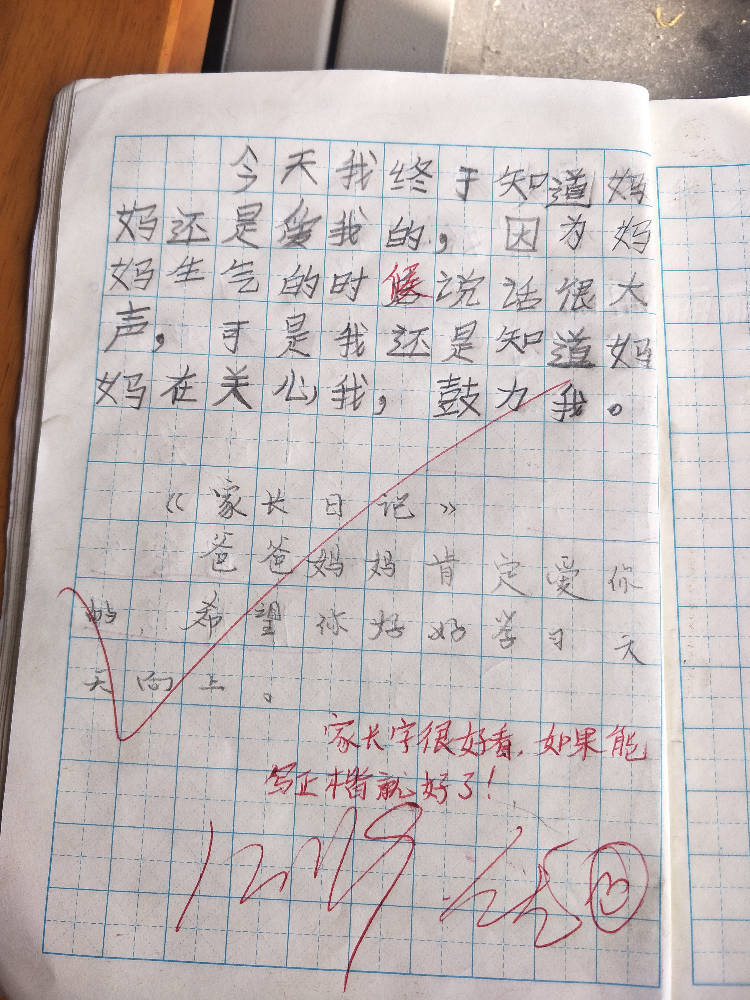 今天我终于知道妈
妈还是爱我的，因为妈
妈生气的时候说话很大
声，于是我还是知道妈
妈在关心我，鼓力我。
《家长日记》
爸爸妈妈肯定爱你
的，希望你好好学习天
天向上。
家长字很好看，如果能
写正楷就好了！
12.29